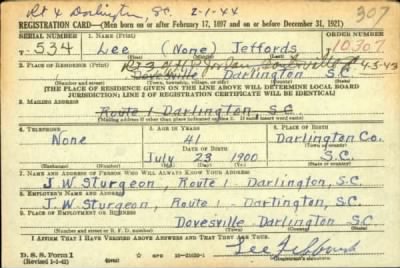 Rt 4 Darlington, SC. 2-1-44
307
REGISTRATION CARD—(Men born on or after February 17, 1897 and on or before December 31, 1921)
SERIAL NUMBER 1. NAME (Print) ORDER NUMBER
T 534 Lee (None) Jeffords 10,307
(First) (Middle) (Last)
Rt 3 4-5-43
2. PLACE OF RESIDENCE (Print)
Dovesville Darlington S.C.
(Number and street) (Town, township, village, or city) (County) (State)
[THE PLACE OF RESIDENCE GIVEN ON THE LINE ABOVE WILL DETERMINE LOCAL BOARD
JURISDICTION; LINE 2 OF REGISTRATION CERTIFICATE WILL BE IDENTICAL]
3. MAILING ADDRESS
Route 1 Darlington S.C
[Mailing address if other than place indicated on line 2. If same insert word same]
4. TELEPHONE 5. AGE IN YEARS 6. PLACE OF BIRTH
None 41 Darlington Co.
DATE OF BIRTH (Town or county)
July 23 1900 S.C.
(Exchange) (Number) (Mo.) (Day) (Yr.) (State or country)
7. NAME AND ADDRESS OF PERSON WHO WILL ALWAYS KNOW YOUR ADDRESS
J.W. Sturgeon, Route 1 - Darlington, S.C.
8. EMPLOYER'S NAME AND ADDRESS
J.W. Sturgeon, Route 1 - Darlington, S.C.
9. PLACE OF EMPLOYMENT OR BUSINESS
Dovesville - Darlington S.C.
(Number and street or R. F. D. number) (Town) (County) (State)
I AFFIRM THAT I HAVE VERIFIED ABOVE ANSWERS AND THAT THEY ARE TRUE.
D. S. S. Form 1
(Revised 1-1-42) (over) 16—21630-1
Lee Jeffords
(Registrant's signature)